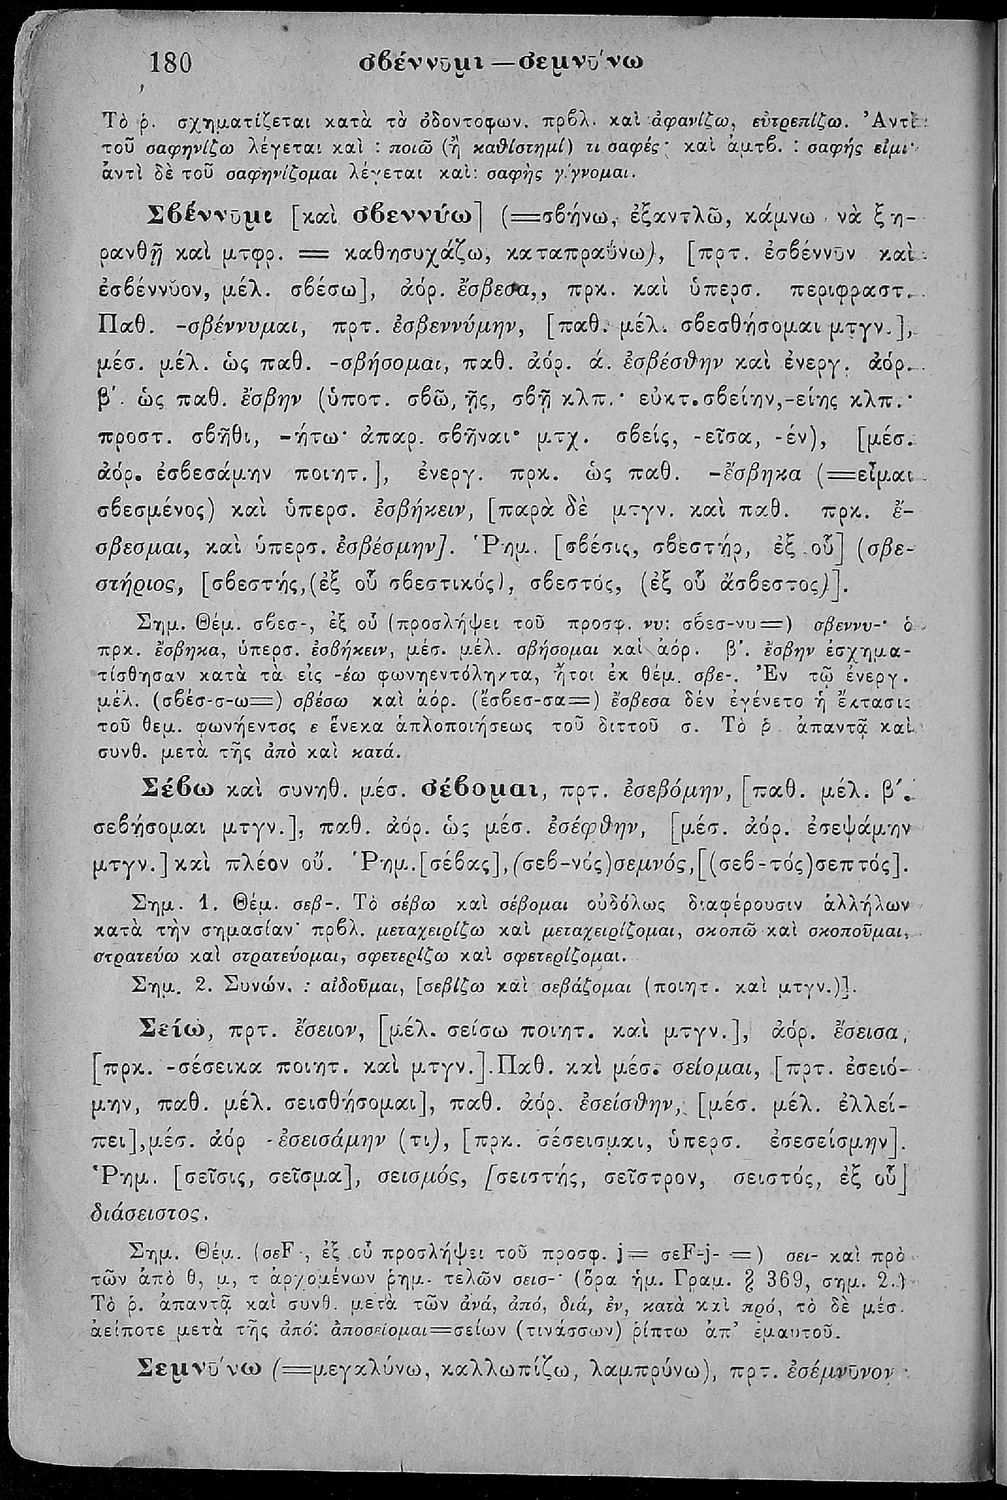 180 σβέννῡμι — σεμνύνω
Τὸ ῥ. σχηματίζεται κατὰ τὰ ὀδοντοφων. πρβλ. καὶ ἀφανίζω, εὐτρεπίζω. Ἀντὶ
τοῦ σαφηνίζω λέγεται καὶ : ποιῶ (ἢ καθίστημί) τι σαφές· καὶ ἀμτβ. : σαφής εἰμι·
ἀντὶ δὲ τοῦ σαφηνίζομαι λέγεται καὶ: σαφὴς γίγνομαι.
Σβέννῡμι [καὶ σβεννύω] (=σβήνω, ἐξαντλῶ, κάμνω νὰ ξη-
ρανθῇ καὶ μτφρ. = καθησυχάζω, καταπραΰνω), [πρτ. ἐσβέννῡν καὶ
ἐσβέννῠον, μέλ. σβέσω], ἀόρ. ἔσβεσα,, πρκ. καὶ ὑπερσ. περιφραστ.
Παθ. -σβέννυμαι, πρτ. ἐσβεννύμην, [παθ. μέλ. σβεσθήσομαι μτγν.],
μέσ. μέλ. ὡς παθ. -σβήσομαι, παθ. ἀόρ. ά. ἐσβέσθην καὶ ἐνεργ. ἀόρ.
β΄. ὡς παθ. ἔσβην (ὑποτ. σβῶ, ῇς, σβῇ κλπ.· εὐκτ.σβείην,-είης κλπ.·
προστ. σβῆθι, -ήτω· ἀπαρ. σβῆναι· μτχ. σβείς, -εῖσα, -έν), [μέσ.
ἀόρ. ἐσβεσάμην ποιητ.], ἐνεργ. πρκ. ὡς παθ. -ἔσβηκα (=εἶμαι
σβεσμένος) καὶ ὑπερσ. ἐσβήκειν, [παρὰ δὲ μτγν. καὶ παθ. πρκ. ἔ-
σβεσμαι, καὶ ὑπερσ. ἐσβέσμην]. Ῥημ. [σβέσις, σβεστήρ, ἐξ οὗ] (σβε-
στήριος, [σβεστής,(ἐξ οὗ σβεστικός), σβεστός, (ἐξ οὗ ἄσβεστος)].
Σημ. Θέμ. σβεσ-, ἐξ οὗ (προσλήψει τοῦ προσφ. νυ: σβεσ-νυ=) σβεννυ-· ὁ
πρκ. ἔσβηκα, ὑπερσ. ἐσβήκειν, μέσ. μέλ. σβήσομαι καὶ ἀόρ. β΄. ἔσβην ἐσχημα-
τίσθησαν κατὰ τὰ εἰς -έω φωνηεντόληκτα, ἤτοι ἐκ θέμ. σβε-. Ἐν τῷ ἐνεργ.
μέλ. (σβέσ-σ-ω=) σβέσω καὶ ἀόρ. (ἔσβεσ-σα=) ἔσβεσα δὲν ἐγένετο ἡ ἔκτασις
τοῦ θεμ. φωνήεντος ε ἕνεκα ἁπλοποιήσεως τοῦ διττοῦ σ. Τὸ ῥ. ἀπαντᾷ καὶ
συνθ. μετὰ τῆς ἀπὸ καὶ κατά.
Σέβω καὶ συνηθ. μέσ. σέβομαι, πρτ. ἐσεβόμην, [παθ. μέλ. β΄.
σεβήσομαι μτγν.], παθ. ἀόρ. ὡς μέσ. ἐσέφθην, [μέσ. ἀόρ. ἐσεψάμην
μτγν.] καὶ πλέον οὔ. Ῥημ.[σέβας],(σεβ-νός)σεμνός,[(σεβ-τός)σεπτός].
Σημ. 1. Θέμ. σεβ-. Τὸ σέβω καὶ σέβομαι οὐδόλως διαφέρουσιν ἀλλήλων
κατὰ τὴν σημασίαν· πρβλ. μεταχειρίζω καὶ μεταχειρίζομαι, σκοπῶ καὶ σκοποῦμαι,
στρατεύω καὶ στρατεύομαι, σφετερίζω καὶ σφετερίζομαι.
Σημ. 2. Συνών. : αἰδοῦμαι, [σεβίζω καὶ σεβάζομαι (ποιητ. καὶ μτγν.)].
Σείω, πρτ. ἔσειον, [μέλ. σείσω ποιητ. καὶ μτγν.], ἀόρ. ἔσεισα,
[πρκ. -σέσεικα ποιητ. καὶ μτγν.].Παθ. καὶ μέσ. σείομαι, [πρτ. ἐσειό-
μην, παθ. μέλ. σεισθήσομαι], παθ. ἀόρ. ἐσείσθην, [μέσ. μέλ. ἐλλεί-
πει],μέσ. ἀόρ -ἐσεισάμην (τι), [πρκ. σέσεισμαι, ὑπερσ. ἐσεσείσμην].
Ῥημ. [σεῖσις, σεῖσμα], σεισμός, [σειστής, σεῖστρον, σειστός, ἐξ οὗ]
διάσειστος.
Σημ. Θέμ. (σεF-, ἐξ οὗ προσλήψει τοῦ προσφ. j= σεF-j- =) σει- καὶ πρὸ
τῶν ἀπὸ θ, μ, τ ἀρχομένων ῥημ. τελῶν σεισ-· (ὅρα ἡμ. Γραμ. § 369, σημ. 2.)
Τὸ ῥ. ἀπαντᾷ καὶ συνθ. μετὰ τῶν ἀνά, ἀπό, διά, ἐν, κατὰ καὶ πρό, τὸ δὲ μέσ.
ἀείποτε μετὰ τῆς ἀπό: ἀποσείομαι=σείων (τινάσσων) ῥίπτω ἀπ' ἐμαυτοῦ.
Σεμνύνω (=μεγαλύνω, καλλωπίζω, λαμπρύνω), πρτ. ἐσέμνῡνον